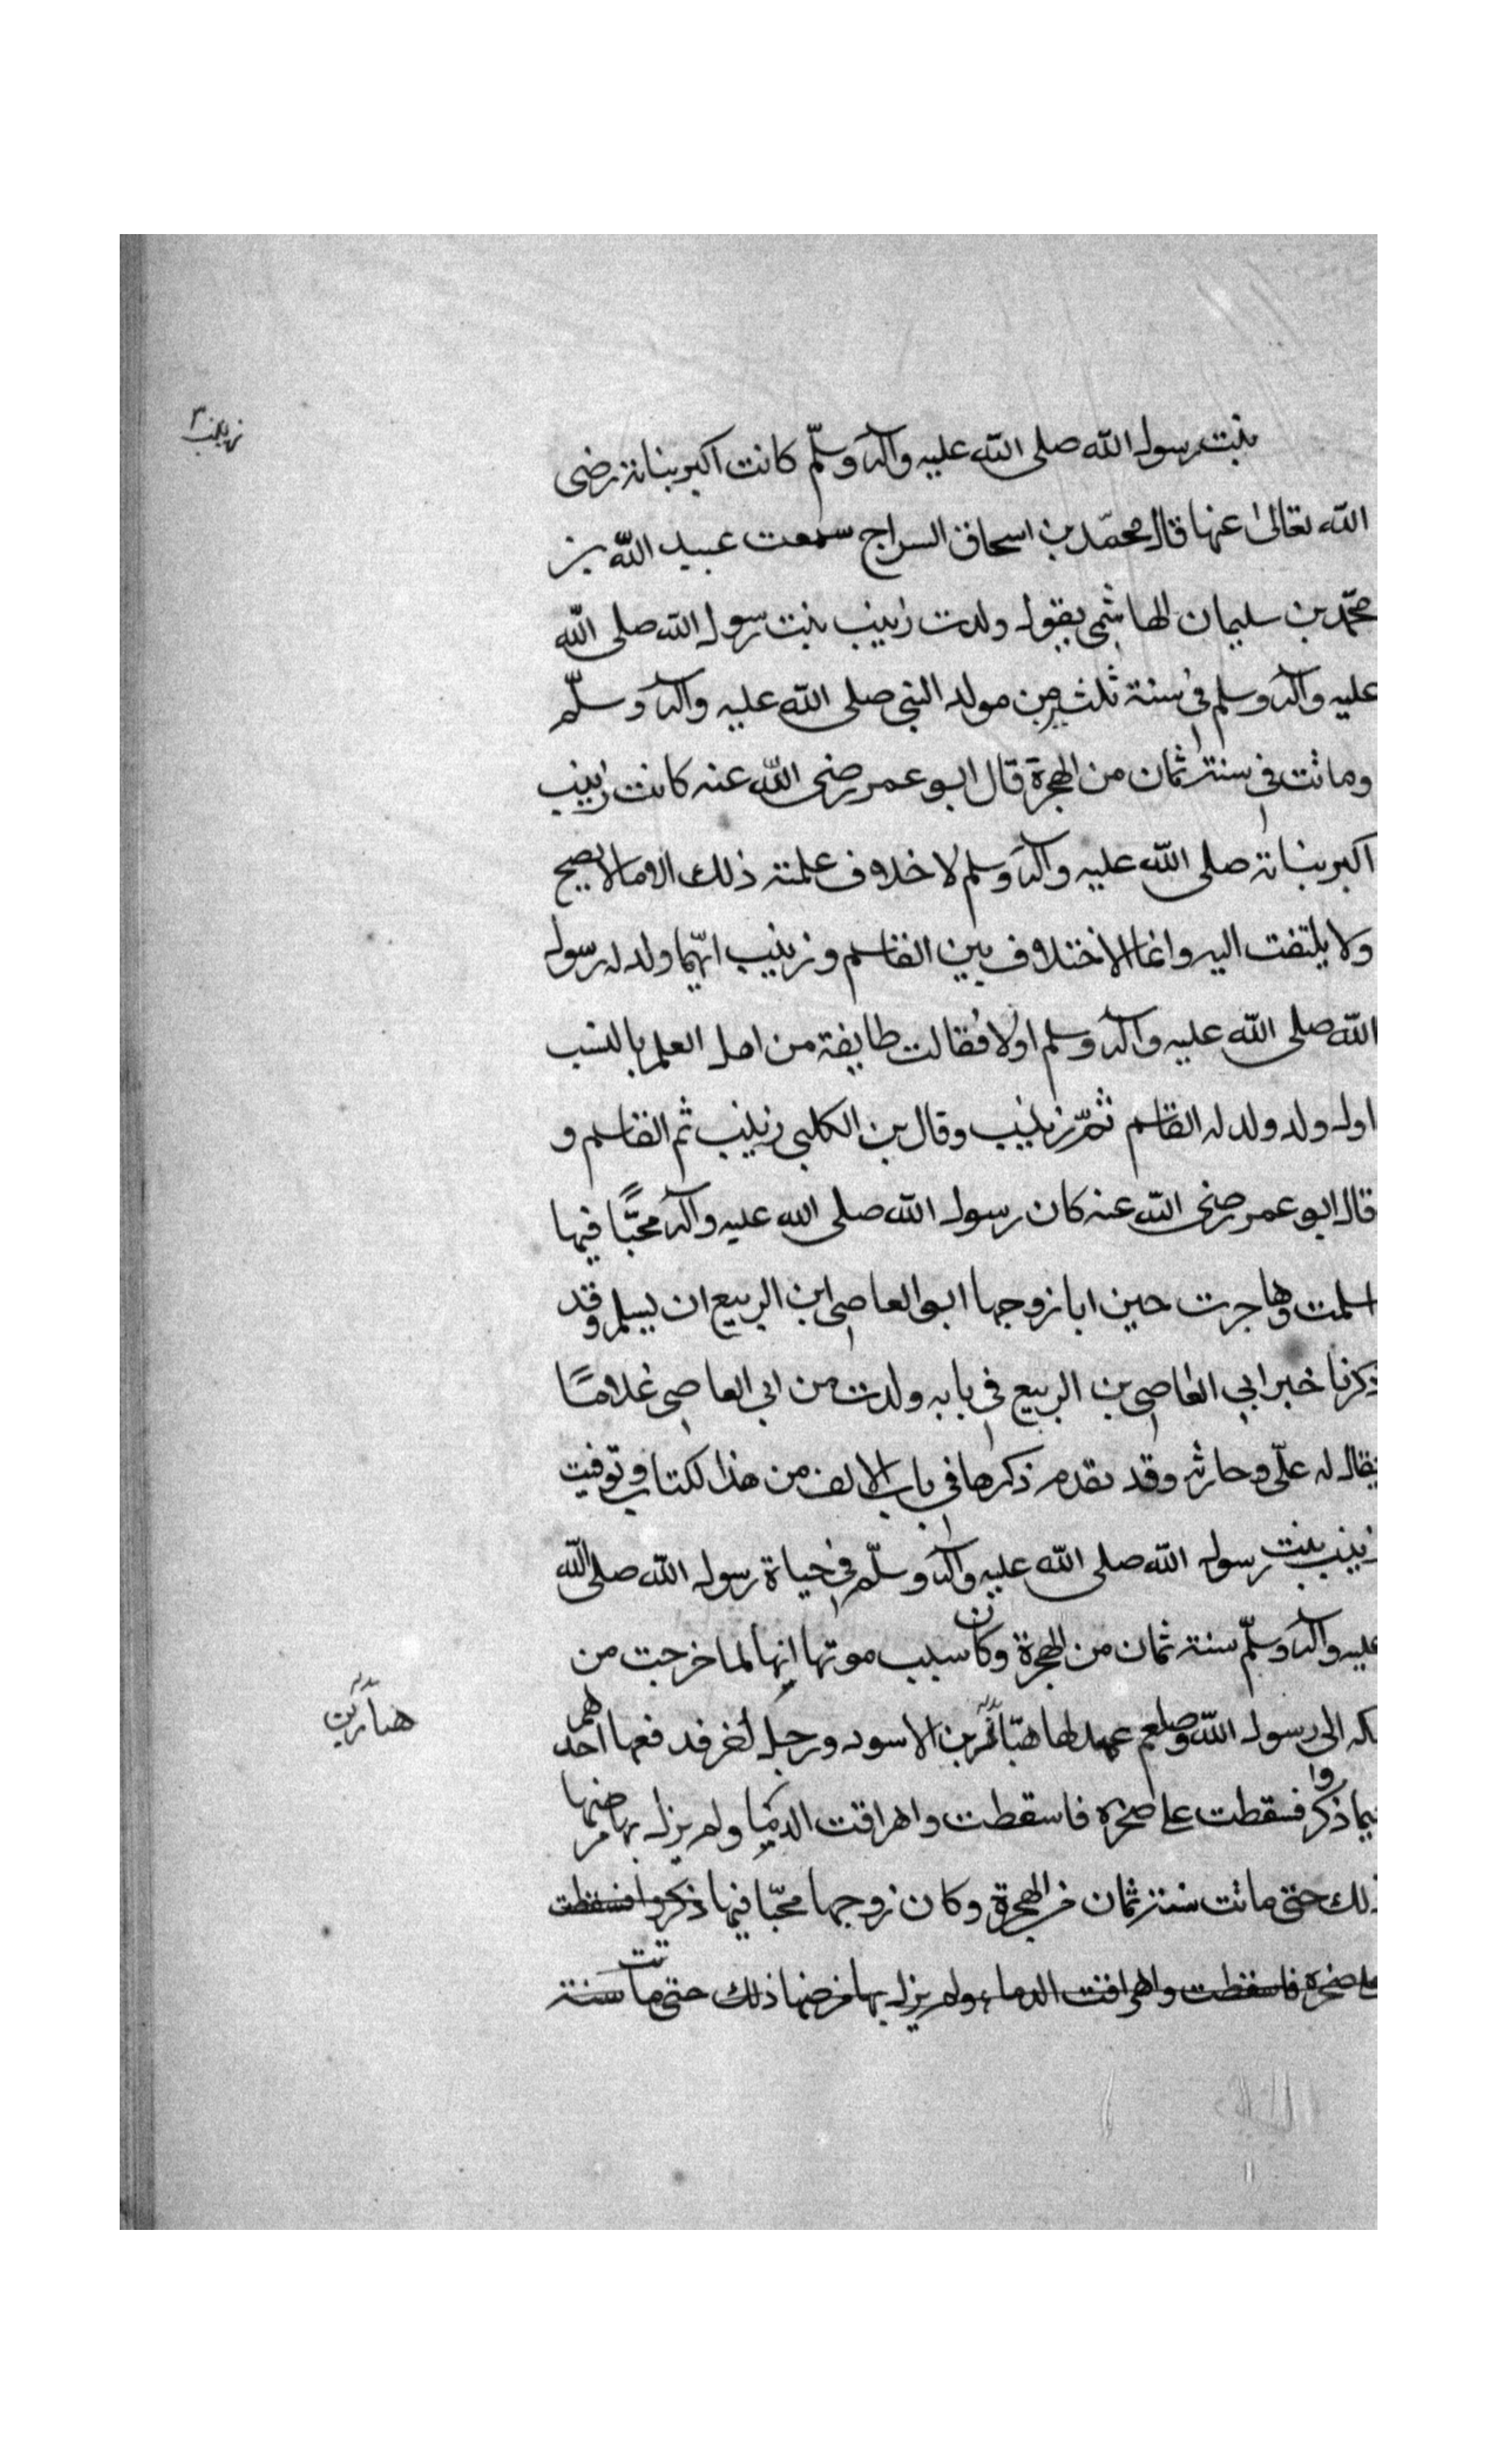 زينب
بنت رسول الله صلى الله عليه وآله وسلّم كانت اكبر بناته رضى
الله تعالىٰ عنها قال محمّد بن اسحاق السراج سمعت عبيد الله بن
محمّد بن سليمان الهاشمى يقول ولدت زينب بنت رسول الله صلى الله
عليه وآله وسلم فى سنة ثلثين من مولد النبى صلى الله عليه وآله وسلّم
وماتت فى سنة ثمان من الهجرة قال ابو عمر رضى الله عنه كانت زينب
اكبر بناته صلى الله عليه وآله وسلم لا خلاف علمته ذلك الا ما لا يصح
ولا يلتفت اليه وانما الاختلاف بين القاسم وزينب ايّهما ولد له رسول
الله صلى الله عليه وآله وسلم اولا فقالت طايفة من اهل العلم بالنسب
اول ولد ولد له القاسم ثمّ زينب وقال بن الكلبى زينب ثم القاسم و
قال ابو عمر رضى الله عنه كان رسول الله صلى الله عليه وآله محبًّا فيها
اسلمت وهاجرت حين ابا زوجها ابو العاصى ابن الربيع ان يسلم وقد
ذكرنا خبر ابى العاصى بن الربيع فى بابه ولدت من ابى العاصى غلامًا
يقال له علّى وحارثه وقد تقدم ذكرها فى باب الالف من هذا لكتاب وتوفيت
زينب بنت رسول الله صلى الله عليه وآله وسلّم فى حياة رسول الله صلى الله
عليه وآله وسلّم سنة ثمان من الهجرة وكان سبب موتها انها لما خرجت من
مكه الى رسول الله صلعم عهد لها هبّار بن الاسود ورجل اخر فدفعها احدهم
هبار بن
فيما ذكروا فسقطت على صخره فاسقطت واهراقت الدما ولم يزل بها مرضها
ذلك حتى ماتت سنة ثمان من الهجرة وكان زوجها محبّا فيها ذكروا فسقطت
على صخره فاسقطت واهراقت الدماء ولم يزل بها مرضها ذلك حتى ماتت سنة